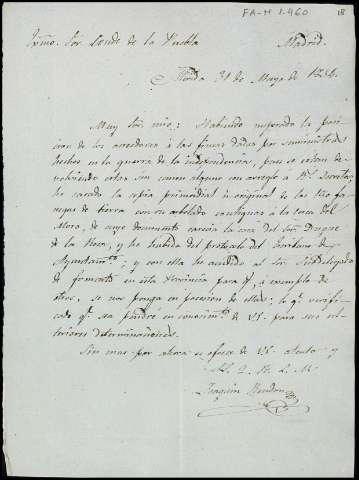 FA-H 1.460
18
Exmo. Sor. Conde de la Puebla Madrid.
Mérida 21 de Mayo de 1834.
Muy Sor. mio: Habiendo mejorado la posi-
cion de los acrehedores à las fincas dadas por suministros
hechos en la guerra de la independencia, pues se estan de-
volviendo estas sin canon alguno con arreglo à Rl. Decreto,
he sacado la copia primordial ù original de las
fanegas de tierra con su arbolado contiguas à la torre del
Moro, de cuyo documento carecia la casa del Sor. Duque
de la Roca, y he habido del protocolo del Escribano de
Ayuntamto. y con ella he acudido al Sor. Subdelegado
de fomento en esta Provincia para q. à exemplo de
otros, se nos ponga en posesion de ellas; lo q. verifi-
cado q. sea pondre en conocimto. de VE. para sus ul-
teriores determinaciones.
Sin mas por ahora se ofrece de VE. atento y
S. S. Q. B. S. M.
Joaquin Rendon